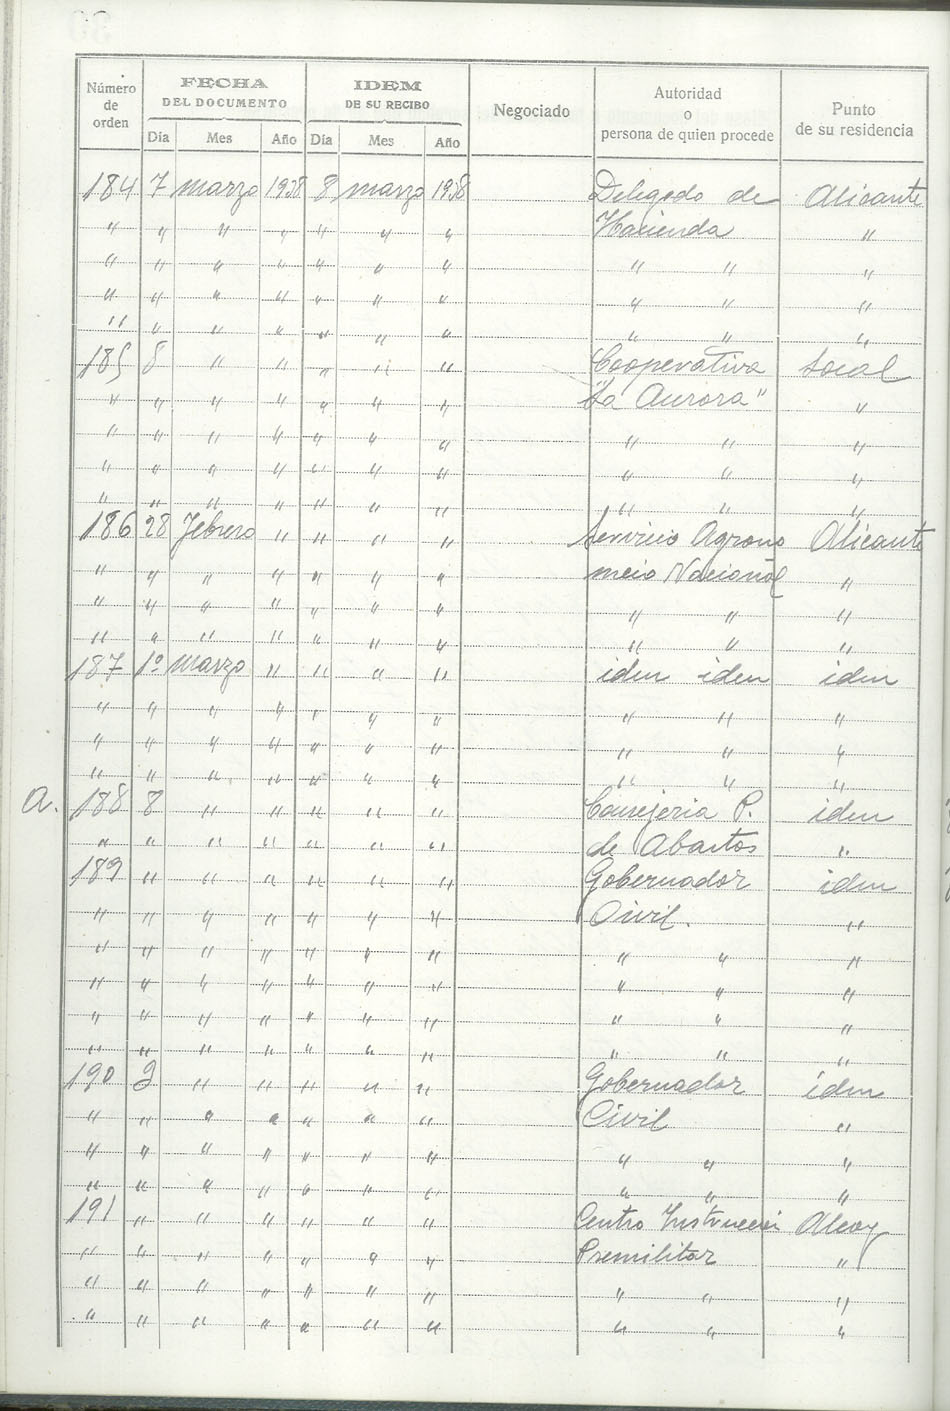 Número de orden | FECHA DEL DOCUMENTO | IDEM DE SU RECIBO | Negociado | Autoridad o persona de quien procede | Punto de su residencia
Día | Mes | Año | Día | Mes | Año
184 7 marzo 1938 8 marzo 1938 Delegado de Alicante
" " " " " " " Hacienda "
" " " " " " " " " "
" " " " " " " " " "
" " " " " " " " " "
185 8 " " " " " Cooperativa Local
" " " " " " " "La Aurora" "
" " " " " " " " " "
" " " " " " " " " "
" " " " " " " " " "
186 28 Febrero " " " " Servicio Agrono Alicante
" " " " " " " mico Nacional "
" " " " " " " " " "
" " " " " " " " " "
187 1º marzo " " " " idem idem idem
" " " " " " " " " "
" " " " " " " " " "
" " " " " " " " " "
a. 188 8 " " " " " Consejeria P. idem
" " " " " " " de Abastos "
189 " " " " " " Gobernador idem
" " " " " " " Civil. "
" " " " " " " " " "
" " " " " " " " " "
" " " " " " " " " "
" " " " " " " " " "
190 " " " " " Gobernador idem
" " " " " " " Civil "
" " " " " " " " " "
" " " " " " " " " "
191 " " " " " " Centro Instrucción Alcoy
" " " " " " " Premilitar "
" " " " " " " " " "
" " " " " " " " " "